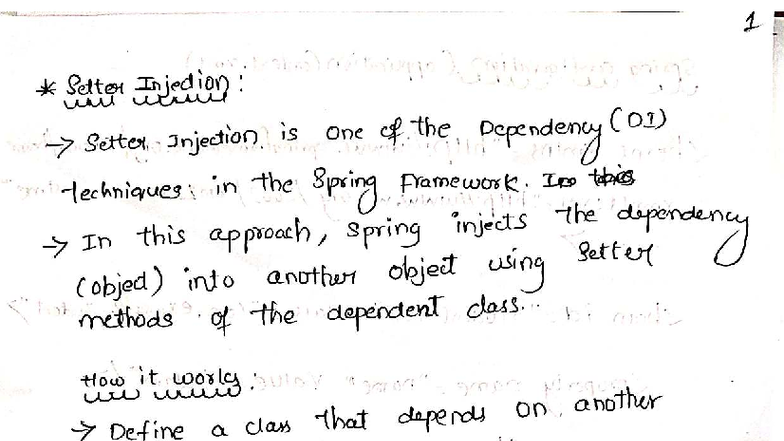 1
* Setter Injection :
→ Setter Injection is one of the Dependency (DI)
techniques in the Spring Framework.
→ In this approach, spring injects the dependency
(object) into another object using setter
methods of the dependent class.
How it works :
→ Define a class that depends on another